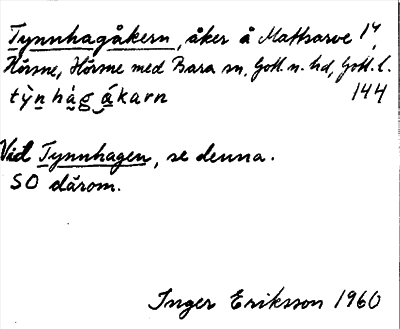 Tynnhagåkern, åker å Mattsarve 1⁴,
Hörsne, Hörsne med Bara sn, Gotl. n. hd, Gotl. l.
tỳn hág ákarn 144
Vid Tynnhagen, se denna.
SO därom.
Inger Eriksson 1960